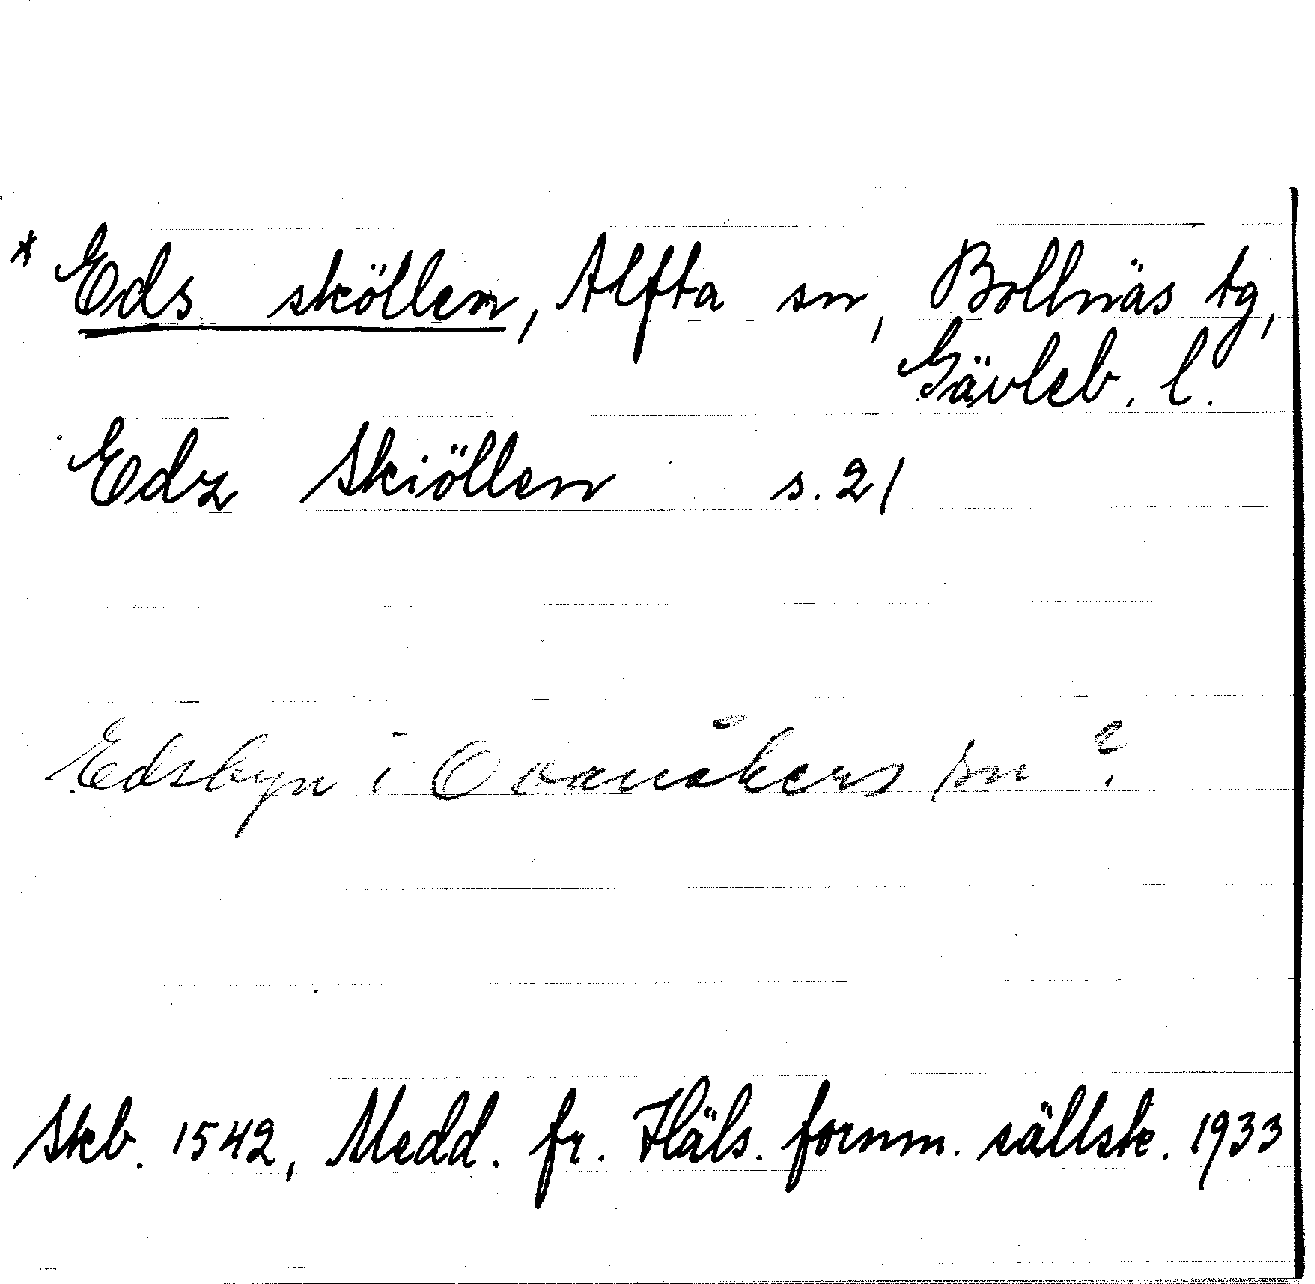 * Eds sköllen, Alfta sn, Bollnäs tg,
Gävleb. l.
Edz Skiöllen s. 21
Edsbyn i Ovanåkers sn ?
Skb. 1542, Medd. fr. Häls. fornm. sällsk. 1933